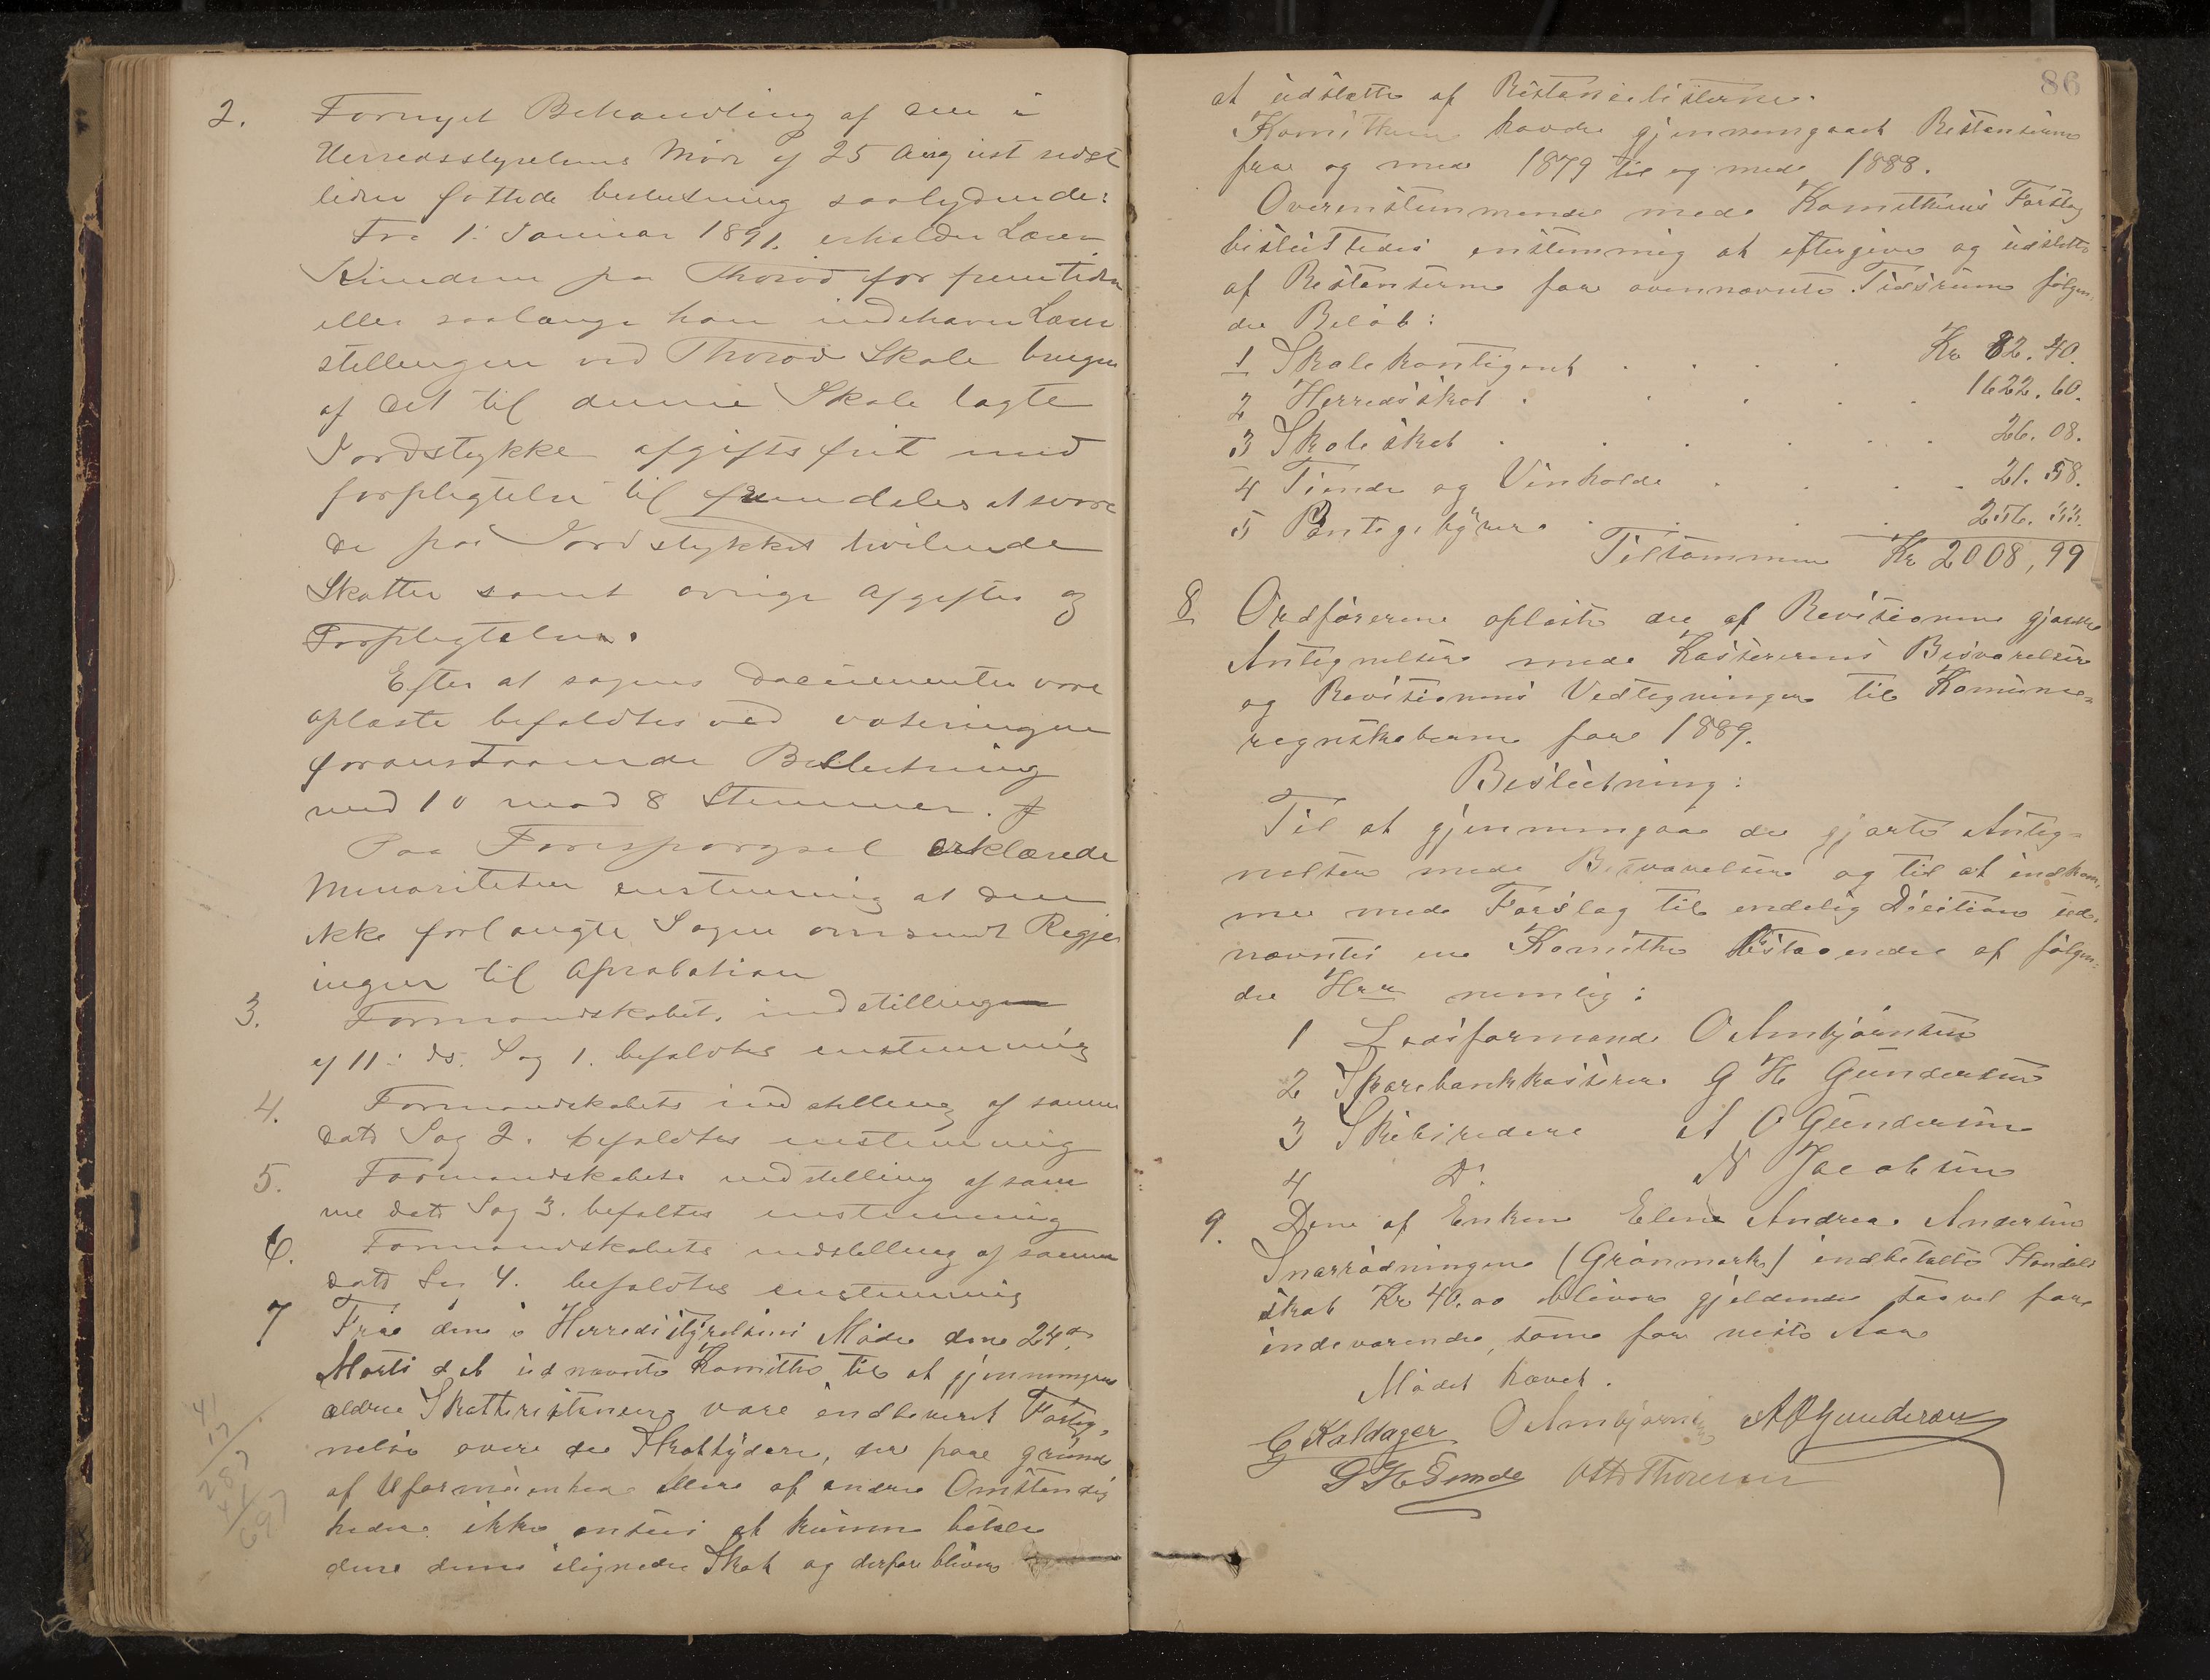 2. Fornyet Behandling af den i
Herredsstyrelsens Møde af 25 August sidst
liden fattede beslutning saalydende:
Fra 1. Januar 1891. erholder Lærer
Knudsen paa Thorød for fremtiden
eller saalænge han indehaver Lærer
stillingen ved Thorød Skole brugen
af det til denne Skole lagte
Jordstykke afgifts frit mod
forpligtelse til fremdeles at svare
de paa Jordstykket hvilende
Skatter samt øvrige Afgifter og
Forpligtelser.
Efter at sagens Documenter vare
oplæste befaldtes ved voteringen
foranstaaende Beslutning
med 10 mod 8 Stemmer.
Paa Forespørgsel erklærede
Minoriteten enstemmig at den
ikke forlangte Sagen omsendt Regjer
ingen til Aprobation
3. Formandskabets indstillingen
af 11. ds. Sag 1. befaldtes enstemmig
4. Formandskabets indstilling af samme
dato Sag 2. befaldtes enstemmig
5. Formandskabets indstilling af sam
me dato Sag 3. befaltes enstemmig
6. Formandskabets indstilling af samme
dato Sag 4. befaldtes enstemmig
7 Fra den i Herredsstyrelsens Møde den 24de
Marts d A udnævnte Komitte til at gjennemgaa
ældre Skatterestanser var indleveret Forteg-
nelse over de Skatydere, der paa grund
af Uformuenhed eller af andre Omstændig
heder ikke antees at kunne betale
den dem ilignede Skat og derfor bliver
41
17
287
41
697
86
at udslette af Restanselisterne.
Komitteen havde gjennemgaaet Restanserne
fra og med 1879 til og med 1888.
Overenstemmende med Komitteens Forslag
besluttedes enstemmig at eftergive og udslette
af Restanserne for ovennævnte Tidsrum følgen-
de Beløb:
1 Skolekontigent . . . . Kr 82.40.
2 Herredsskat . . . . . 1622.60.
3 Skoleskat . . . . . . 26.08.
4 Tiende og Vinholde . . . . 21.58.
5 Pantegebyrer . . . . 256.33.
Tilsammen Kr 2008,99
8 Ordføreren oplæste de af Revisionen gjorte
Antegnelser med Kassererens Besvarelser
og Revisionens Vedtegninger til Komune-
regnskaberne for 1889.
Beslutning:
Til at gjennemgaa de gjorte Anteg-
nelser med Besvarelser og til at indkom-
me med Forslag til endelig Dicition ud-
nævntes en Komitte bestaaendre af følgen-
de Hrr nemlig:
1 Lodsformand O Ambjørnsen
2 Sparebankkasserer G H Gundersen
3 Skibsreder A O Gundersen
4 Do N Jacobsen
9. Den af Enken Elen Andrea Andersen
Snarrødningen (Grønmark) indbetalte Handels
skat Kr 40.00 bliver gjeldende saavel for
indeværende, som for neste Aar
Mødet hævet.
G Kaldager O Ambjørnsen A O Gundersen
Otto Thoresen